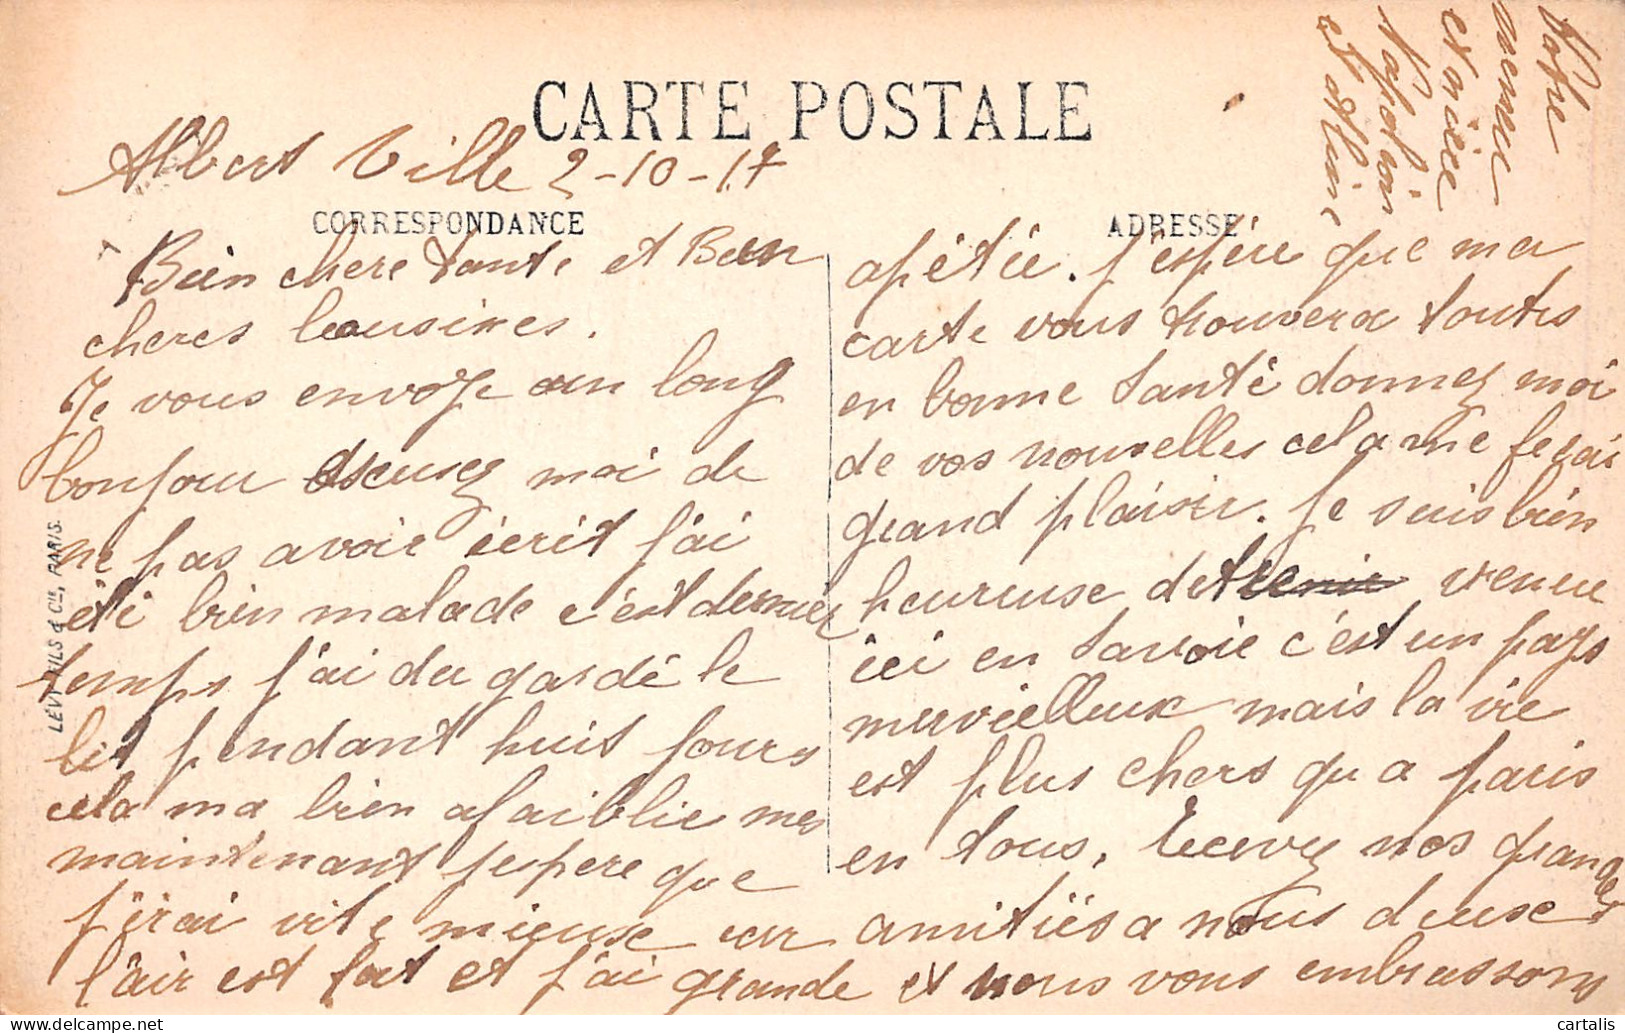 CARTE POSTALE
Albert Ville 2-10-17
CORRESPONDANCE
Bein chere tante et Bien
cheres Cousines.
Je vous envoye un long
bonjour escusez moi de
ne pas avoir ecrit j'ai
été bien malade c'est dernier
temps j'ai du gardé le
lit pendant huit jours
cela ma bien afaiblie mes
maintenant jespere que
j'irai vite mieuse car
l'air est fat et j'ai grande
ADRESSE
apétie. j'espére que ma
carte vous trouvera toutes
en bonne Santé donnez moi
de vos nouvelles cela me ferai
grand plaisir. Je suis bien
heureuse de venue
ici en Savoie c'est un pays
mervielleux mais la vie
est plus chers qu a paris
en tous. Recevez nos grandes
amitiés a nous deuse
et nous vous embrassons
Votre
et nièce
et Alain
LÉVY FILS & Cie, PARIS.
cartalis
delcampe.net